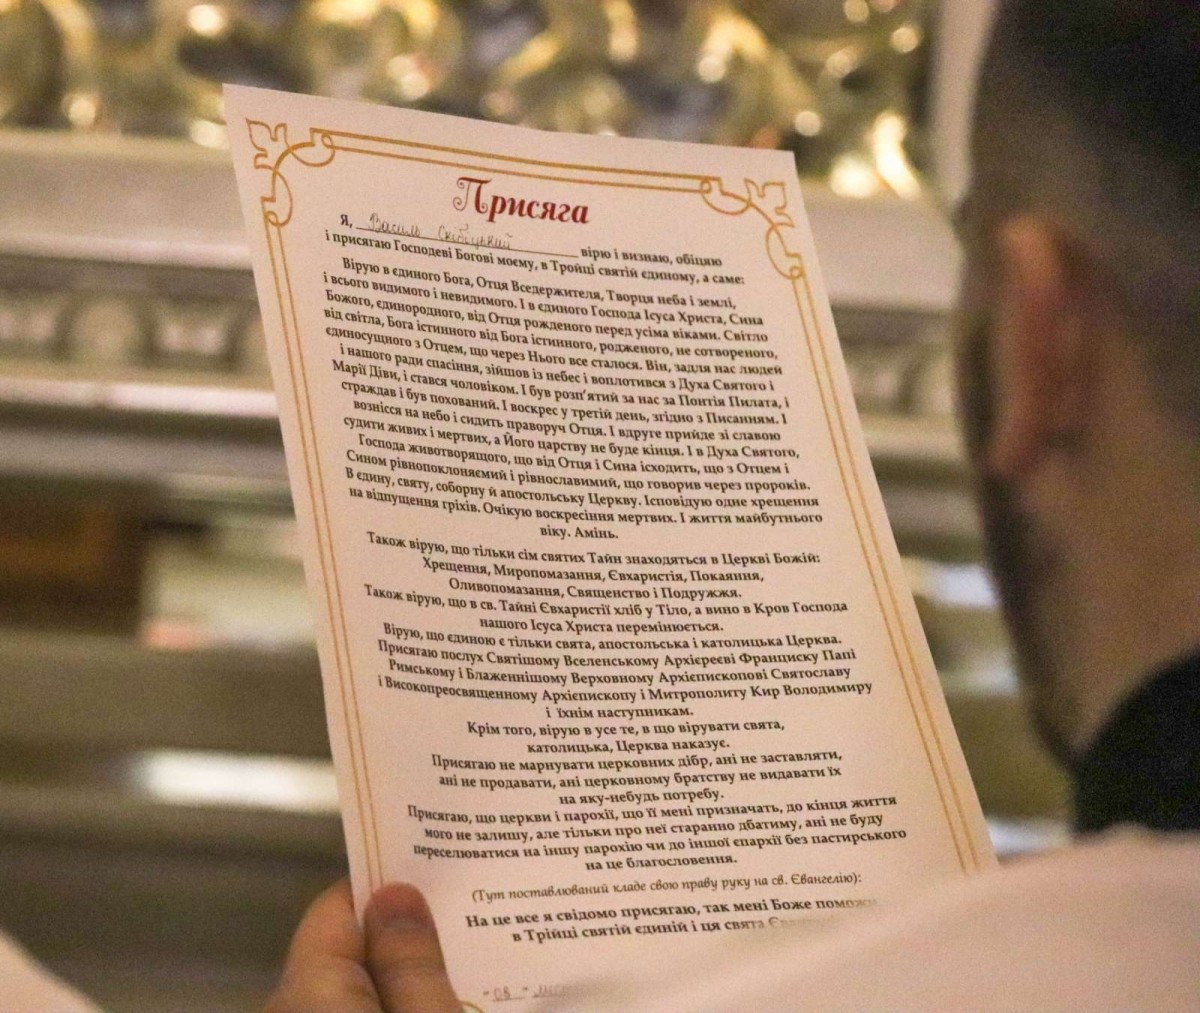 Присяга
Я, Василь Скібіцький вірю і визнаю, обіцяю
і присягаю Господеві Богові моєму, в Тройці святій єдиному, а саме:
Вірую в єдиного Бога, Отця Вседержителя, Творця неба і землі,
і всього видимого і невидимого. І в єдиного Господа Ісуса Христа, Сина
Божого, єдинородного, від Отця рожденого перед усіма віками. Світло
від світла, Бога істинного від Бога істинного, родженого, не сотвореного,
єдиносущного з Отцем, що через Нього все сталося. Він, задля нас людей
і нашого ради спасіння, зійшов із небес і воплотився з Духа Святого і
Марії Діви, і стався чоловіком. І був розп'ятий за нас за Понтія Пилата, і
страждав і був похований. І воскрес у третій день, згідно з Писанням. І
вознісся на небо і сидить праворуч Отця. І вдруге прийде зі славою
судити живих і мертвих, а Його царству не буде кінця. І в Духа Святого,
Господа животворящого, що від Отця і Сина ісходить, що з Отцем і
Сином рівнопоклоняємий і рівнославимий, що говорив через пророків.
В єдину, святу, соборну й апостольську Церкву. Ісповідую одне хрещення
на відпущення гріхів. Очікую воскресіння мертвих. І життя майбутнього
віку. Амінь.
Також вірую, що тільки сім святих Тайн знаходяться в Церкві Божій:
Хрещення, Миропомазання, Євхаристія, Покаяння,
Оливопомазання, Священство і Подружжя.
Також вірую, що в св. Тайні Євхаристії хліб у Тіло, а вино в Кров Господа
нашого Ісуса Христа перемінюється.
Вірую, що єдиною є тільки свята, апостольська і католицька Церква.
Присягаю послух Святішому Вселенському Архієреєві Франциску Папі
Римському і Блаженнішому Верховному Архієпископові Святославу
і Високопреосвященному Архієпископу і Митрополиту Кир Володимиру
і їхнім наступникам.
Крім того, вірую в усе те, в що вірувати свята,
католицька, Церква наказує.
Присягаю не марнувати церковних дібр, ані не заставляти,
ані не продавати, ані церковному братству не видавати їх
на яку-небудь потребу.
Присягаю, що церкви і парохії, що її мені призначать, до кінця життя
мого не залишу, але тільки про неї старанно дбатиму, ані не буду
переселюватися на іншу парохію чи до іншої єпархії без пастирського
на це благословення.
(Тут поставлюваний кладе свою праву руку на св. Євангелію):
На це все я свідомо присягаю, так мені Боже
в Трійці святій єдиній і ця свята
"08"